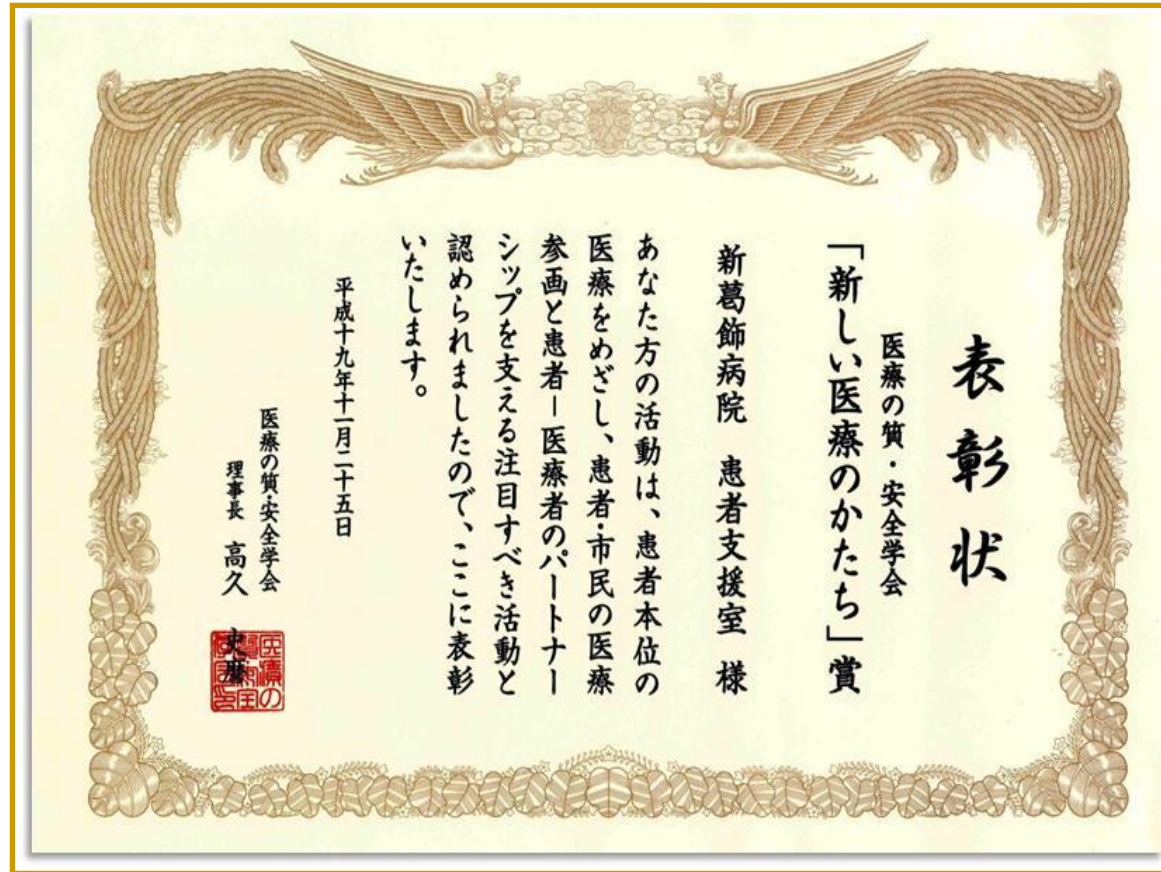 表彰状
医療の質・安全学会
「新しい医療のかたち」賞
新葛飾病院 患者支援室 様
あなた方の活動は、患者本位の
医療をめざし、患者・市民の医療
参画と患者－医療者のパートナー
シップを支える注目すべき活動と
認められましたので、ここに表彰
いたします。
平成十九年十一月二十五日
医療の質・安全学会
理事長 高久 史麿